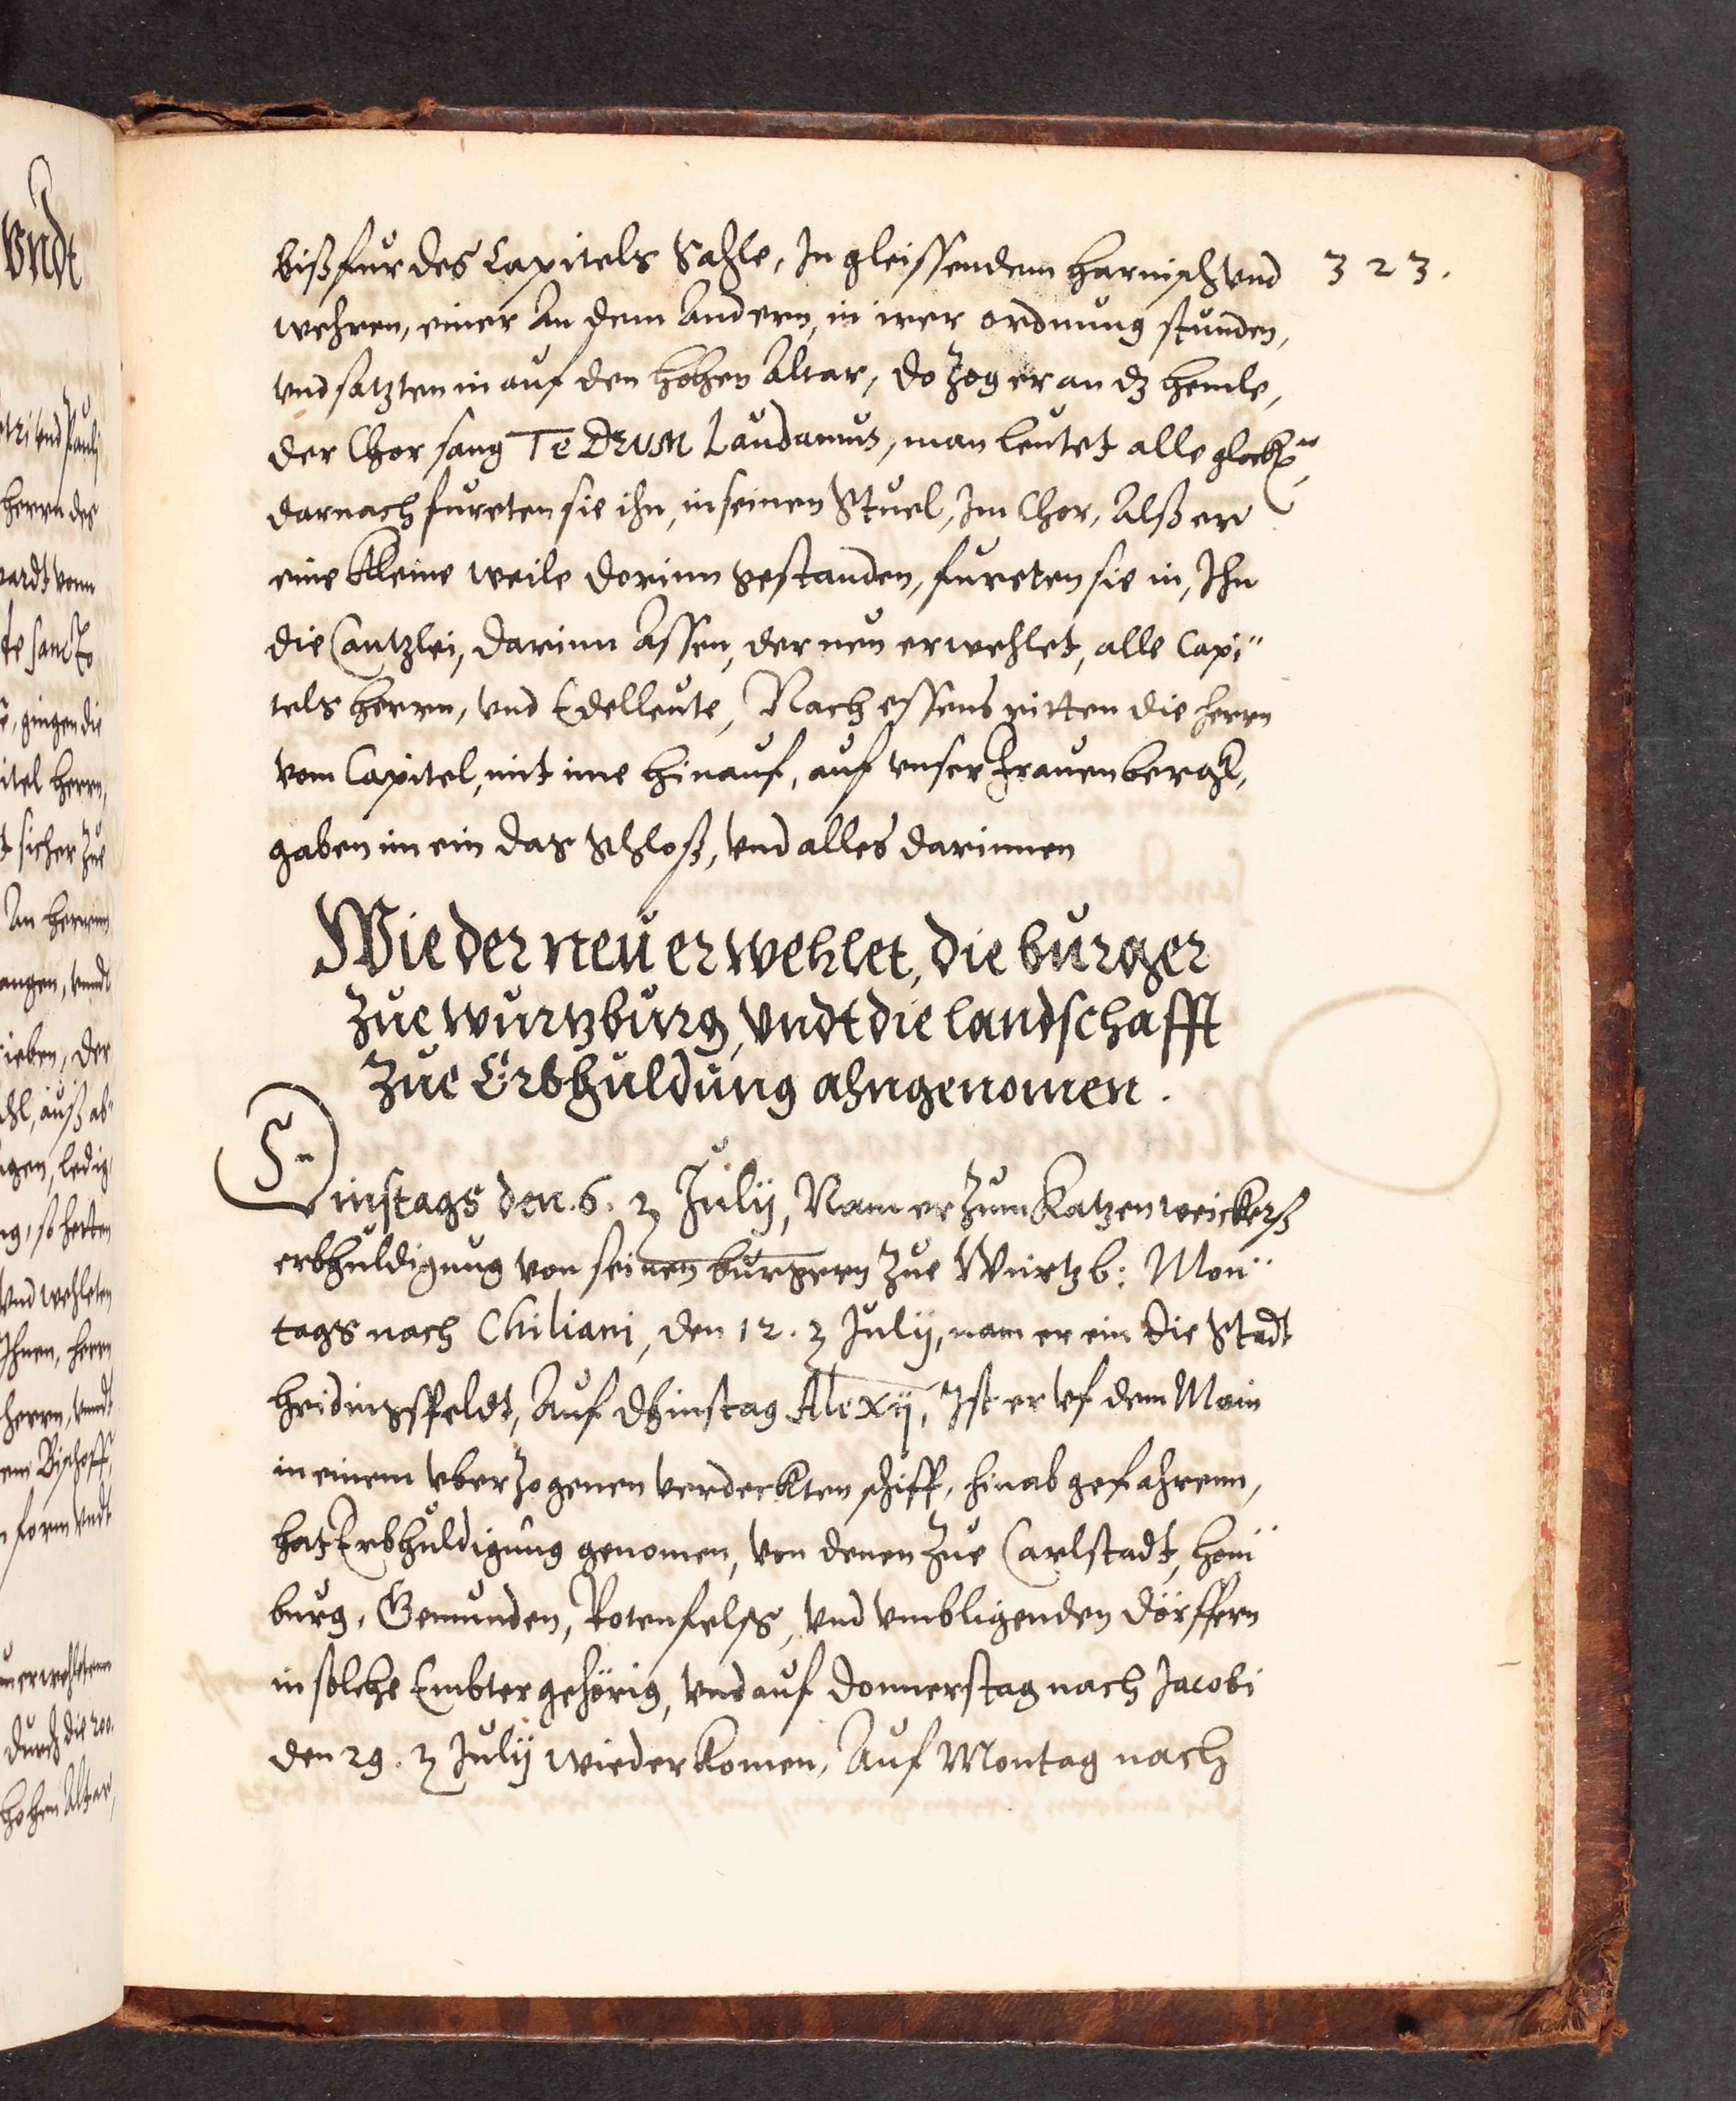 323.
biß fur des Capitels Sahle, In gleissendem harnisch und
wehren, einer An dem Andern, in irer ordnung stunden,
und satzten in auf den hohen Altar, do zog er an dz hemle,
der Chor sang Te DEUM Laudamus, man leutet alle glocken,
darnach fureten sie ihn, in seinen Stuel, Im Chor, Alß er
eine kleine weile dorinn gestanden, fureten sie in, Ihn
die Cantzlei, darinn Assen, der neu erwehlet, alle Capi¨
tels herrn, und Edelleute, Nach essens ritten die herrn
vom Capitel, mit ime hinauf, auf unser Frauenbergk,
gaben im ein das Schloß, und alles darinnen
Wie der neu erwehlet, die burger
zue wurtzburg, undt die landschafft
zue Erbhuldung ahngenomen.
Dinstags den .6. Julij, Nam er zum Katzenweickerß
erbhuldigung von seinen burgern zue Wurtzb: Mon¨
tags nach Chiliani, den 12. Julij, nam er ein die Stadt
heidingsfeldt, Auf dhinstag Alexij, Ist er uf dem Main
in einem uberzogenen verdeckten schiff, hinab gefahrenn,
hat Erbhuldigung genomen, von denen zue Carlstadt, hom¨
burg, Gemunden, Rotenfelß, und umbligenden dörffern
in solche Embter gehörig, und auf donnerstag nach Jacobi
den 29. Julij wiederkomen, Auf Montag nach
undt